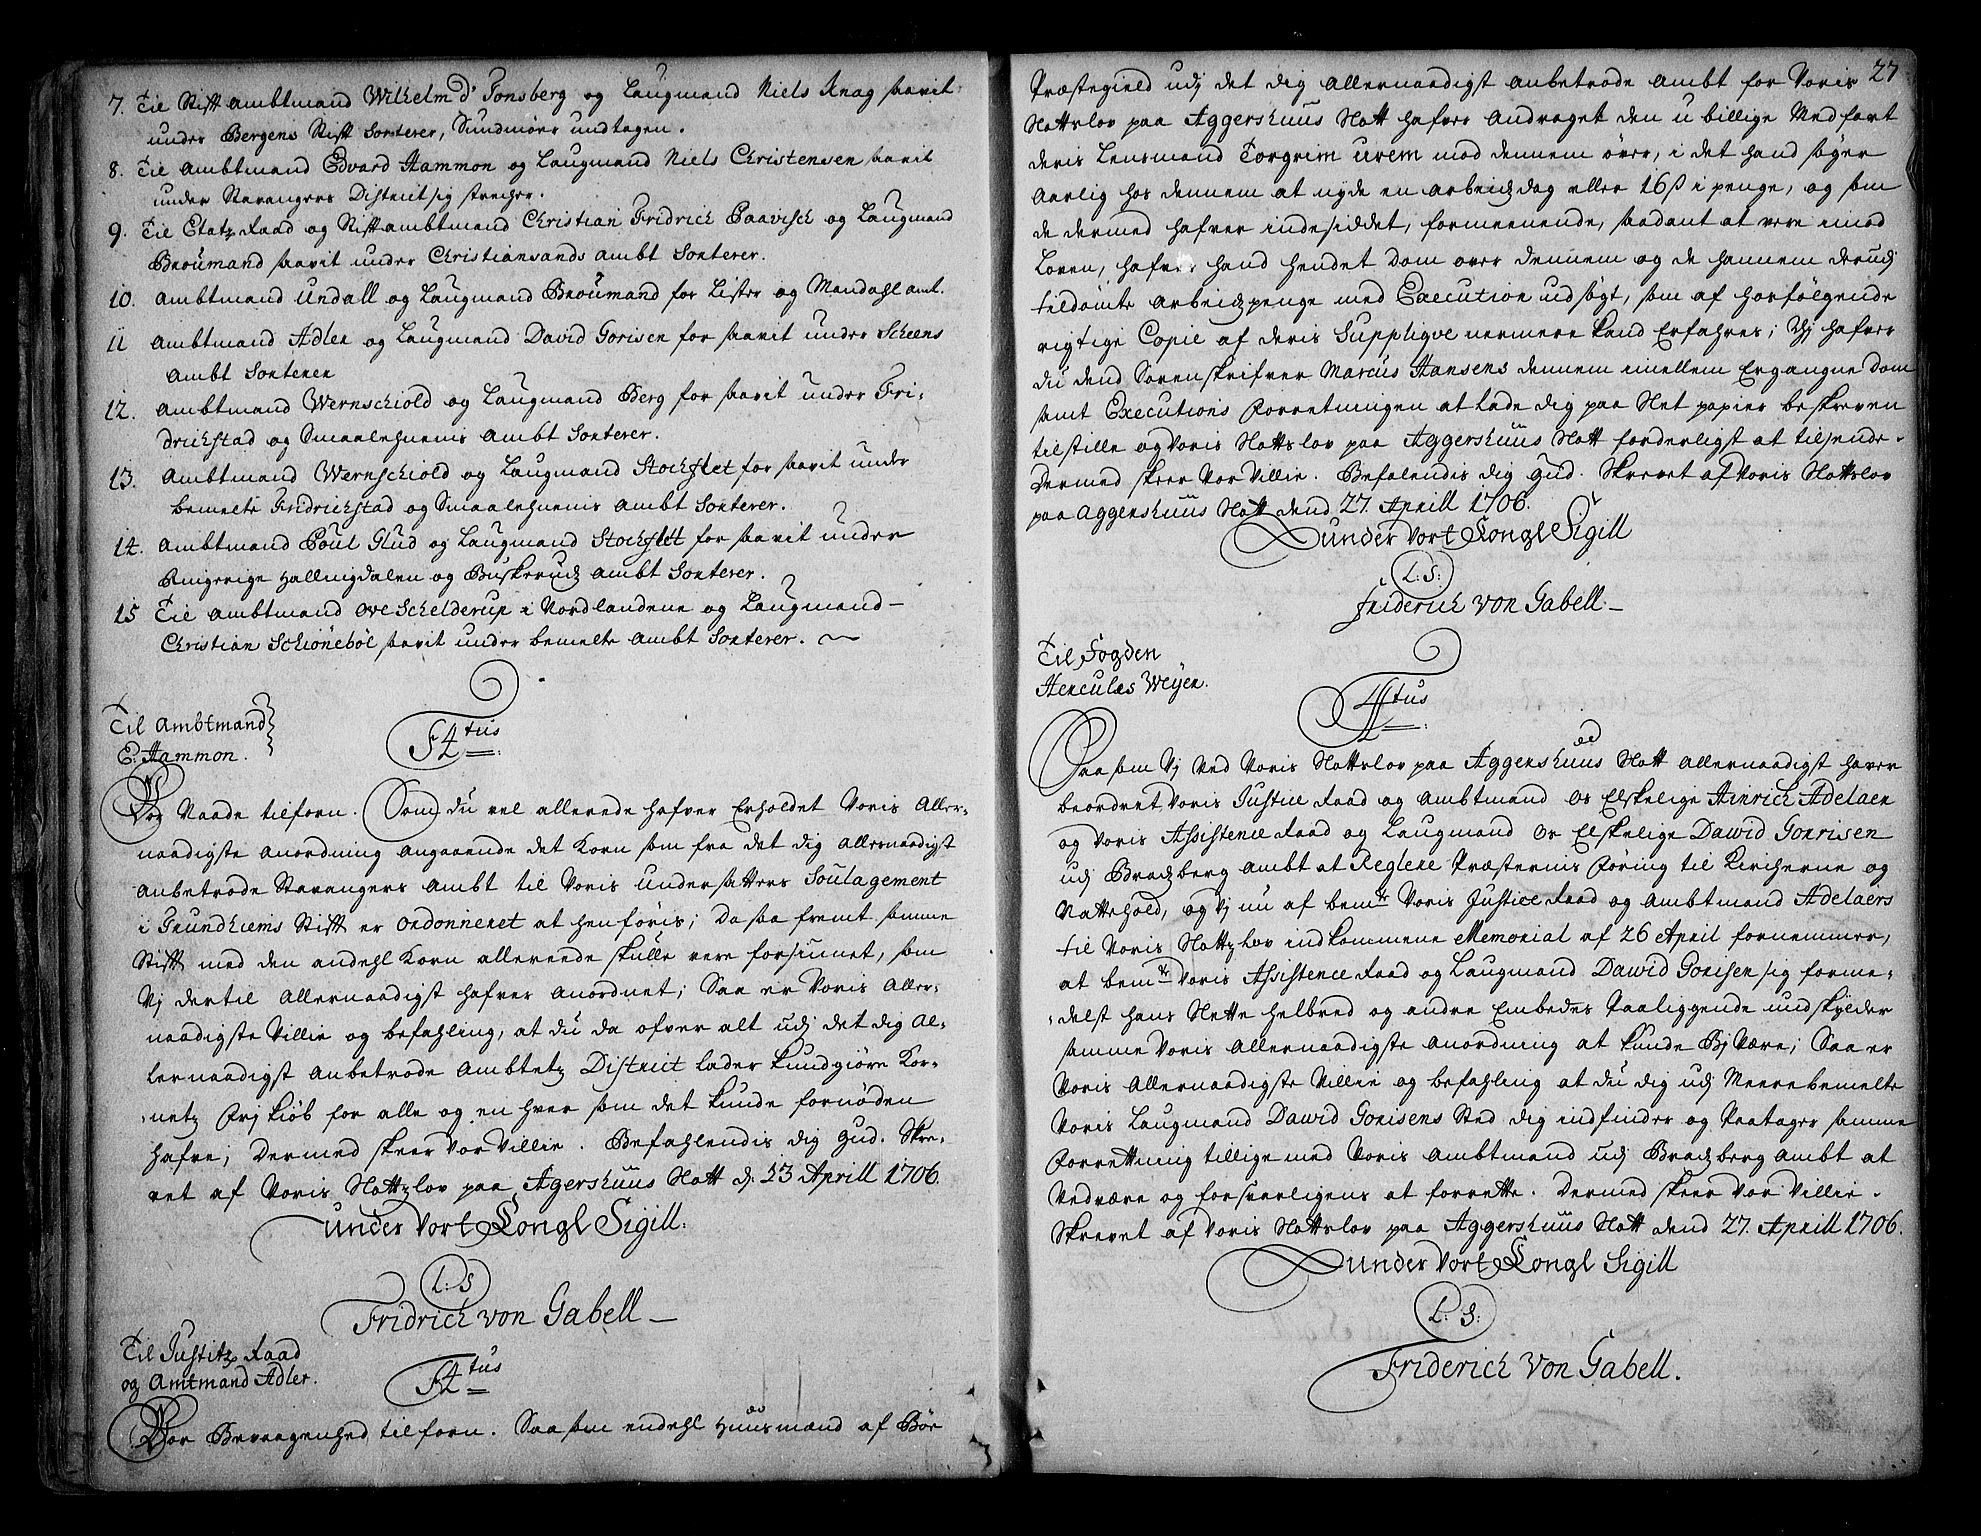 7. Til Stift Ambtmand Wilhelm d' Tonsberg og Laugmand Niels Knag saavit
under Bergens Stift Sorterer, Sundmøer undtagen.
8. Til Ambtmand Edvard Hammon og Laugmand Niels Christensen saavit
under Stavangers District sig strecher.
9. Til Etatz Raad og Stiftambtmand Christian Fridrich Paavisch og Laugmand
Broümand saavit under Christiansands Ambt Sorterer.
10. Ambtmand Undall og Laugmand Broümand for Lister og Mandahl amt.
11 Ambtmand Adler og Laugmand David Gorisen for saavit under Scheens
Ambt Sorterer
12. Ambtmand Wernschiold og Laugmand Berg for saavit under Fri-
drichstad og Smaalehnenis Ambt Sorterer.
13. Ambtmand Wernschiold og Laugmand Stochflet for saavit under
bemelte Fridrichstad og Smaalehnenis Ambt Sorterer.
14. Ambtmand Poul Glud og Laugmand Stochflet for saavit under
Ringerige Hallingdalen og Buskeruds Ambt Sorterer.
15 Til Ambtmand Ove Schelderup i Nordlandene og Laugmand
Christian Schiønebøl saavit under bemelte Ambt Sorterer.
Til Ambtmand
E. Hammon.
F4tus
Vor Naade tilforn. Som du vel allerede hafver Erholdet Voris Aller-
naadigste Anordning angaaende det Korn som fra det dig allernaadigst
Anbetrode Stavangers Ambt til Voris undersatters Soulagement
i Trundhiems Stift er ordonneret at henføris; Da saa fremt samme
Stift med den andehl Korn allereede skulle vere forsiunet, som
Vj dertil allernaadigst hafver Anordnet; Saa er Voris Aller-
naadigste Villie og befahling, at du da ofver alt udj det dig Al-
lernaadigst Anbetrode Ambtetz District lader Kundgiøre Kor-
netz Frj Kiøb for alle og en hver som det kunde fornøden
hafve; Dermed skeer Vor Villie. Befahlendis dig Gud. Skre-
vet af Voris Slottzlov paa Agershuus Slott d. 23 Aprill 1706.
under Vort Kongl Sigill.
L: S
Fridrich von Gabell
Til Justitz Raad
og Amtmand Adler.
F4tus
Vor Bevaagenhed tilforn. Saa som endehl Huusmænd af Bøe
27
Præstegield udj det dig Allernaadigst Anbetrode Ambt for Voris
Slottslov paa Aggershuus Slott hafver Andraget den u billige Medfart
deris Lensmand Torgrim Urem mod dennem øver, i det hand søger
Aarlig hos dennem at nyde en Arbeidsdag eller 16 ß i penge, og som
de dermed hafver indesiddet, formeenende, saadant at vere imod
Loven, hafver hand hendet Dom over Dennem og de hannem derudj
tildømte Arbeidspenge med Execution udsøgt, som af hosfølgende
rigtige Copie af deris Suppliqve nermere Kand Erfahres; Thj hafver
du dend Sorenskrifver Marcus Hansens dennem imellem Ergangne Dom
samt Executions Forretningen at lade dig paa Slet papier beskreven
tilstille og Voris Slottslov paa Aggershuus Slott forderligst at tilsende.
Dermed skeer Vor Villie. Befalendis dig Gud. Skrevet af Voris Slottslov
paa Aggershuus Slott dend 27. Aprill 1706.
under Vort Kongl Sigill
L: S:
Friderich von Gabell.
Til Fogden
Herculæs Weyer.
F4tus
Saa som Vj Ved Voris Slottslov paa Aggershuus Slott Allernaadigst haver
beordret Voris Justice Raad og Ambtmand Os Elskelige Hinrich Adelaer
og Voris Assistence Raad og Laugmand Os Elskelige Dawid Gorrisen
udj Bradsberg Ambt at Reglere Præsternis Føring til Kircherne og
Nattehold, og Vj nu af bemte Voris Justice Raad og Ambtmand Adelaers
til Voris Slottzlov indkommene Memorial af 26 April fornemmer,
at bemte Voris Assistence Raad og Laugmand Dawid Gorisen sig forme-
delst hans Slette helbred og andre Embedes Paaliggende undskylder
samme Voris Allernaadigste Anordning at kunde Bj Være; Saa er
Voris Allernaadigste Villie og befahling at du dig udj Meerebemelte
Voris Laugmand Dawid Gorisens Sted dig indfinder og Paatager samme
Forrettning tillige med Voris Ambtmand udj Bradsberg Ambt at
Vedvære og forsvarligens at forrette. Dermed skeer Vor Villie.
Skrevet af Voris Slottslov paa Aggershuus Slott dend 27. Aprill 1706.
under Vort Kongl Sigill
L: S:
Friderich von Gabell.